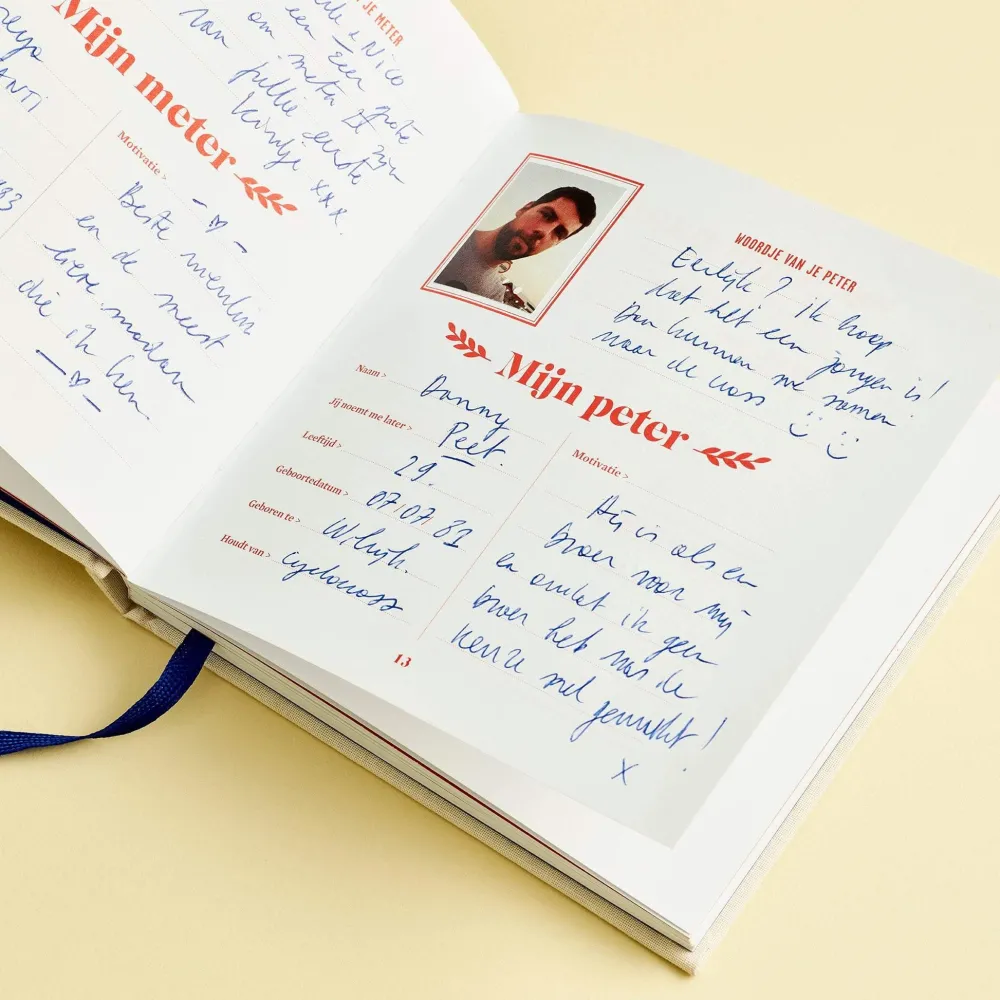 JE METER
Nico
een Eer
om meter te zijn
van jullie eerste
kindje xxx.
Mijn meter
ANTI
Motivatie >
Beste vriendin
en de meest
lieve madam
die ik ken
WOORDJE VAN JE PETER
Eerlijk? ik hoop
dat het een jongen is!
Dan kunnen we samen
naar de cross
Mijn peter
Naam > Danny
Jij noemt me later > Peet.
Leeftijd > 29.
Geboortedatum > 07/07/81
Geboren te > Wilrijk.
Houdt van > cyclocross
Motivatie >
Hij is als en
broer voor mij
en omdat ik geen
broer heb was de
keuze snel gemaakt!
x
13